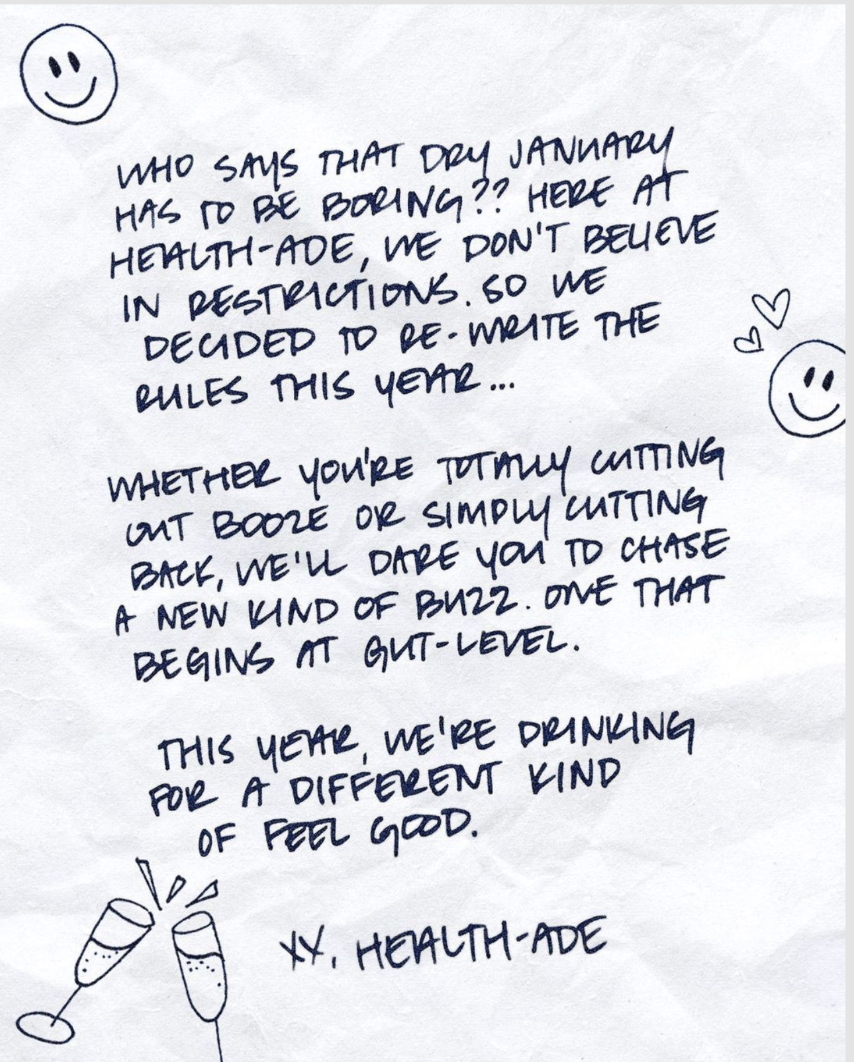 WHO SAYS THAT DRY JANUARY
HAS TO BE BORING?? HERE AT
HEALTH-ADE, WE DON'T BELIEVE
IN RESTRICTIONS. SO WE
DECIDED TO RE-WRITE THE
RULES THIS YEAR...
WHETHER YOU'RE TOTALLY CUTTING
OUT BOOZE OR SIMPLY CUTTING
BACK, WE'LL DARE YOU TO CHASE
A NEW KIND OF BUZZ. ONE THAT
BEGINS AT GUT-LEVEL.
THIS YEAR, WE'RE DRINKING
FOR A DIFFERENT KIND
OF FEEL GOOD.
XX, HEALTH-ADE